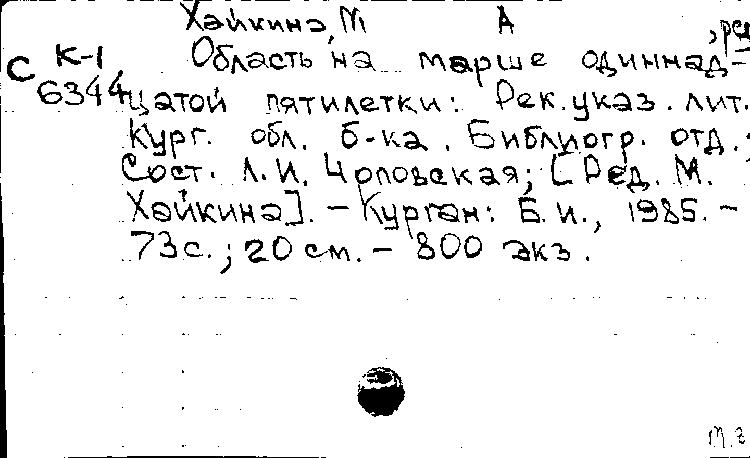 Хайкина, М А , ред
С К-1 6344
Область на марше одиннад-
цатой пятилетки: Рек. указ. лит.
Кург. обл. б-ка. Библиогр. отд.;
Сост. Л.И. Чоповская; [Ред. М.
Хайкина]. – Курган: Б.и., 1985. –
73 с.; 20 см. – 800 экз.